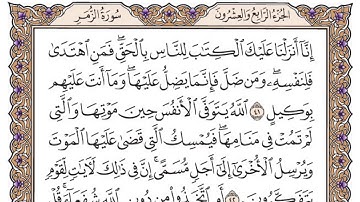 الجزء الرابع والعشرون سورة الزمر
إِنَّا أَنزَلْنَا عَلَيْكَ الْكِتَٰبَ لِلنَّاسِ بِالْحَقِّ ۖ فَمَنِ اهْتَدَىٰ
فَلِنَفْسِهِ ۖ وَمَن ضَلَّ فَإِنَّمَا يَضِلُّ عَلَيْهَا ۖ وَمَا أَنتَ عَلَيْهِم
بِوَكِيلٍ ٤١ اللَّهُ يَتَوَفَّى الْأَنفُسَ حِينَ مَوْتِهَا وَالَّتِي
لَمْ تَمُتْ فِي مَنَامِهَا ۖ فَيُمْسِكُ الَّتِي قَضَىٰ عَلَيْهَا الْمَوْتَ
وَيُرْسِلُ الْأُخْرَىٰ إِلَىٰ أَجَلٍ مُّسَمًّى ۚ إِنَّ فِي ذَٰلِكَ لَآيَٰتٍ لِّقَوْمٍ
يَتَفَكَّرُونَ ٤٢ أَمِ اتَّخَذُوا مِن دُونِ اللَّهِ شُفَعَاءَ ۚ قُلْ